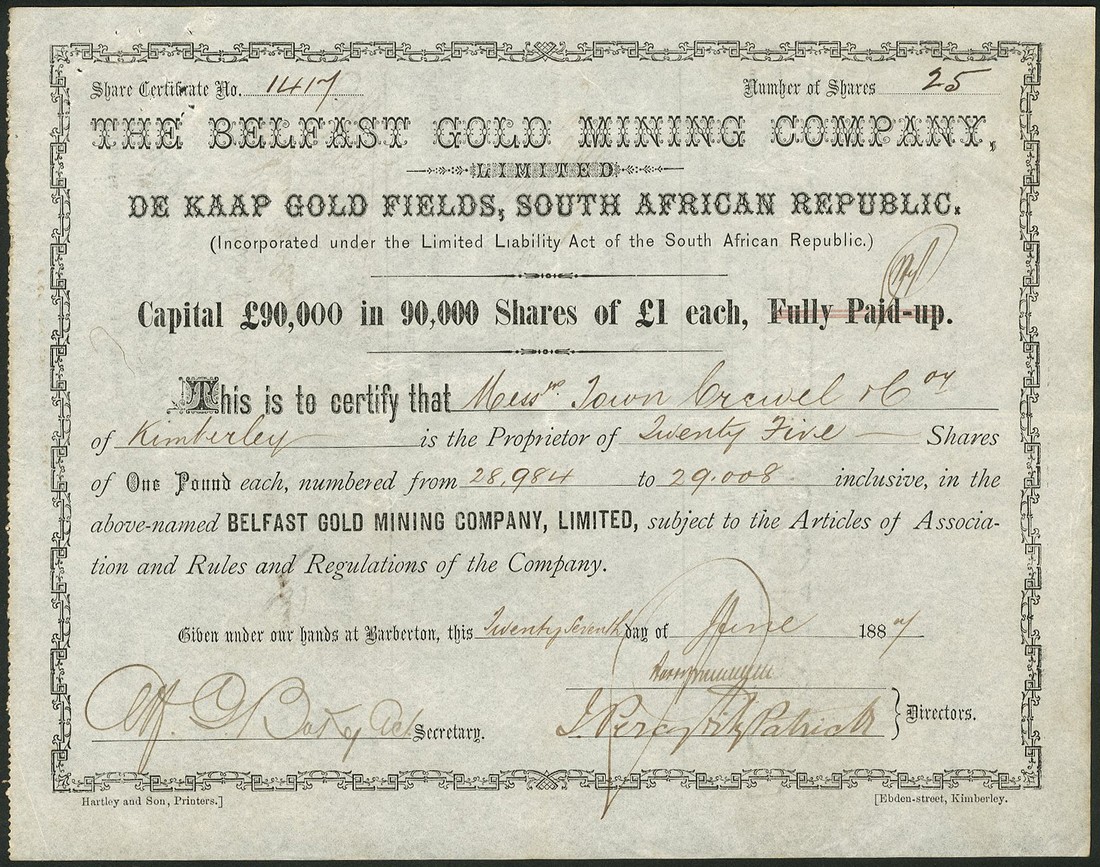 Share Certificate No. 1417 Number of Shares 25
THE BELFAST GOLD MINING COMPANY,
LIMITED
DE KAAP GOLD FIELDS, SOUTH AFRICAN REPUBLIC.
(Incorporated under the Limited Liability Act of the South African Republic.)
Capital £90,000 in 90,000 Shares of £1 each, Fully Paid-up.
This is to certify that Messrs Town Crewel & Coy
of Kimberley is the Proprietor of Twenty Five Shares
of One Pound each, numbered from 28,984 to 29.008 inclusive, in the
above-named BELFAST GOLD MINING COMPANY, LIMITED, subject to the Articles of Associa-
tion and Rules and Regulations of the Company.
Given under our hands at Barberton, this Twenty Seventh day of June 1887
J Percy FitzPatrick
Secretary. Directors.
Hartley and Son, Printers.] [Ebden-street, Kimberley.